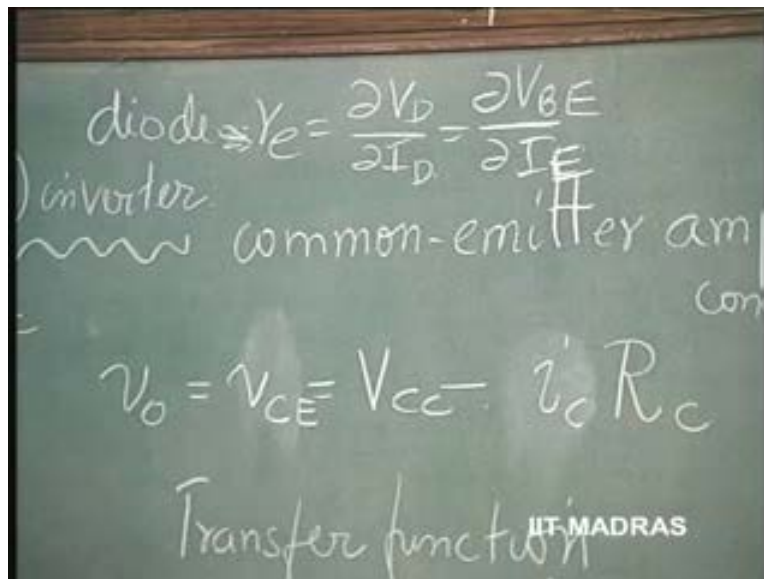 diode ⇒ re = ∂VD/∂ID = ∂VBE/∂IE
) inverter
common-emitter am
com
vo = vCE = VCC - ic RC
Transfer function
IIT MADRAS